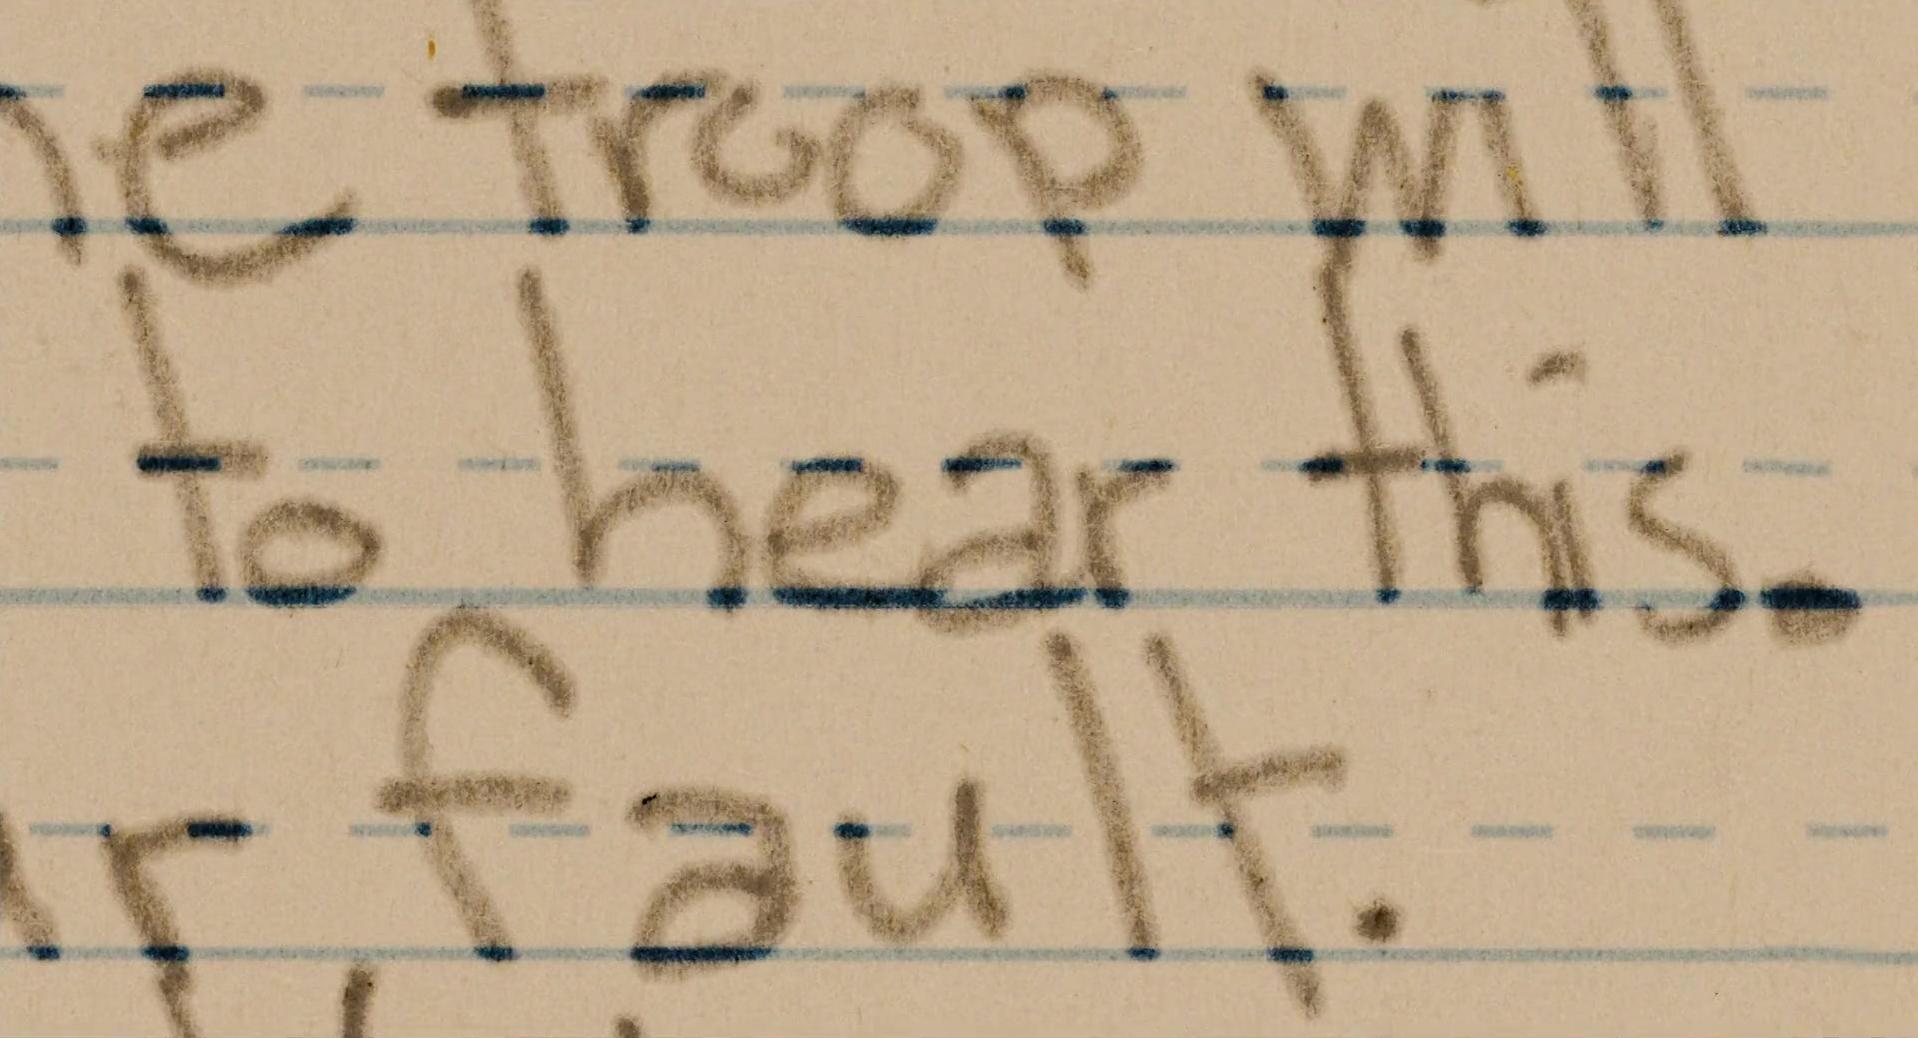 troop will
to hear this.
fault.